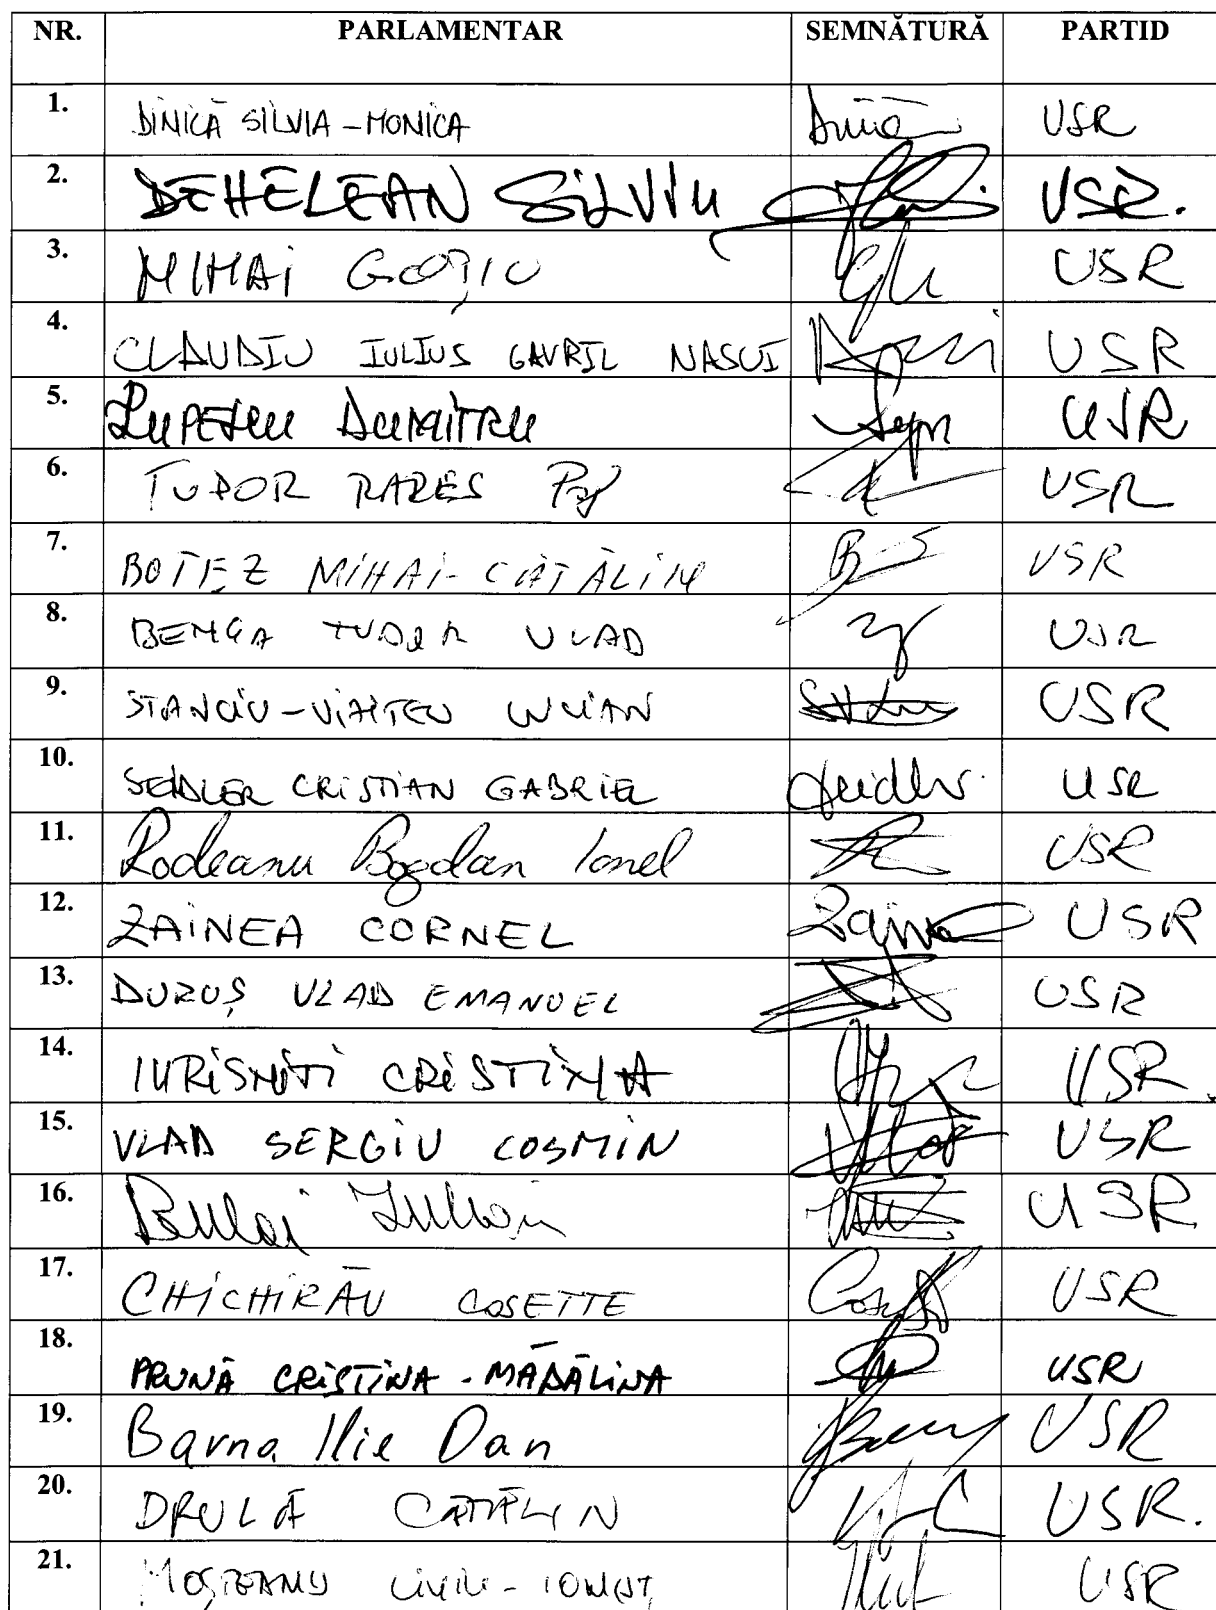 NR. PARLAMENTAR SEMNĂTURĂ PARTID
1. DINICĂ SILVIA-MONICA USR
2. DEHELEAN SILVIU USR.
3. MIHAI GOȚIU USR
4. CLAUDIU IULIUS GAVRIL NASUI USR
5. LUPESCU DUMITRU USR
6. TUDOR RARES POP USR
7. BOTEZ MIHAI-CĂTĂLIN USR
8. BENGA TUDOR VLAD USR
9. STANCIU-VIZITEU LUCIAN USR
10. SEIDLER CRISTIAN GABRIEL Seidler USR
11. Rodeanu Bogdan Ionel USR
12. ZAINEA CORNEL Zainea USR
13. DURUȘ VLAD EMANUEL USR
14. IURISNITI CRISTINA USR
15. VLAD SERGIU COSMIN USR
16. Bulai Iulian USR
17. CHICHIRĂU COSETTE USR
18. PRUNĂ CRISTINA-MĂDĂLINA USR
19. Barna Ilie Dan USR
20. DRULĂ CĂTĂLIN USR.
21. MOȘTEANU LIVIU-IONUȚ USR